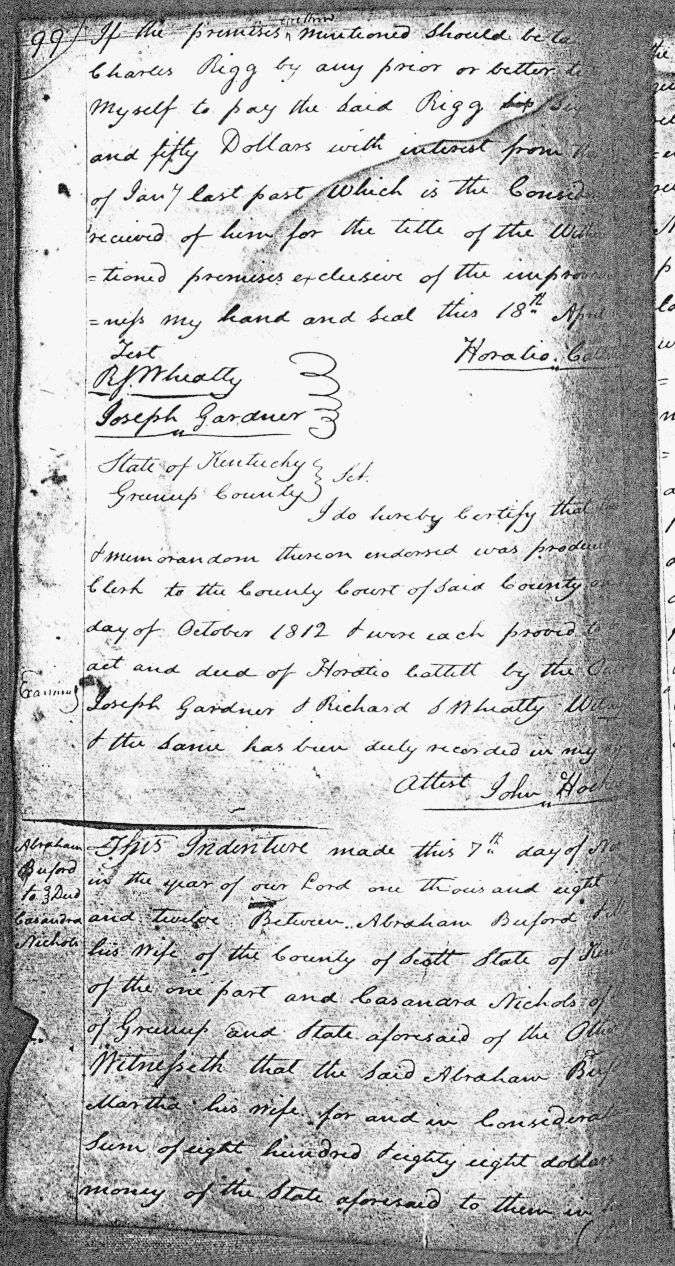 99
If the premises within mentioned should be
Charles Rigg by any prior or better
Myself to pay the Said Rigg
and fifty Dollars with interest from
of Jany last past Which is the
recieved of him for the title of the
=tioned premises exclusive of the
=ness my hand and Seal this 18th April
Test
Horatio
RSWheatly
Joseph Gardner
State of Kentucky
Sct.
Greenup County
I do hereby Certify that
& memorandom thereon endorsed was
Clerk to the County Court of Said County
day of October 1812 & were each proved
act and deed of Horatio Catlett by the
Joseph Gardner & Richard S Wheatly
& the Same has been duly recorded in my
Attest John
Abraham
Buford
to } Deed
Casandra
Nichols
This Indenture made this 7th day of
in the year of our Lord one thousand eight
and twelve Between Abraham Buford
his Wife of the County of Scott State of
of the one part and Casandra Nichols of
of Greenup and State aforesaid of the
Witnesseth that the Said Abraham
Martha his wife for and in
Sum of eight hundred & eighty eight dollars
money of the State aforesaid to them in